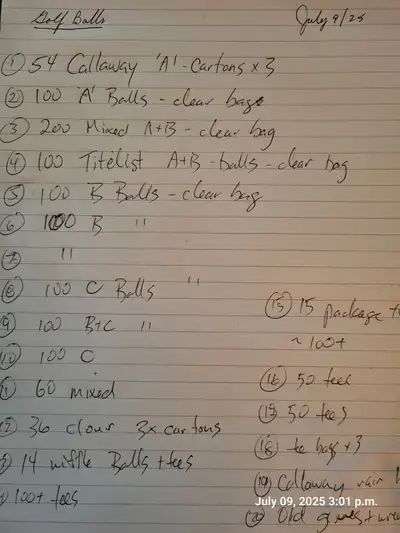 Golf Balls
July 9/25
① 54 Callaway 'A' - Cartons x 3
② 100 'A' Balls - clear bags
③ 200 Mixed A+B - clear bag
④ 100 Titelist A+B - balls - clear bag
⑤ 100 B Balls - clear bag
⑥ 100 B "
⑦ "
⑧ 100 C Balls "
⑨ 100 B+C "
⑩ 100 C
60 mixed
36 clour 3x cartons
14 wiffle Balls + tees
100+ tees
⑮ 15 package
~ 100+
⑯ 50 tees
⑰ 50 tees
⑱ tee bags x 3
⑲ Callaway rain
⑳ Old
July 09, 2025 3:01 p.m.